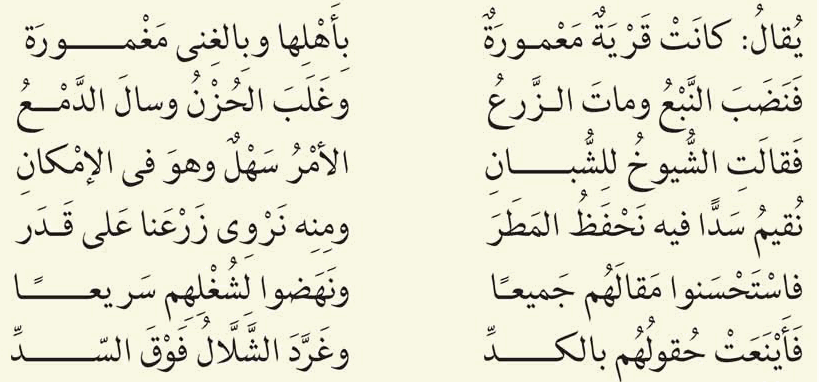 يُقالُ: كانَتْ قَرْيَةٌ مَعْمورَةٌ بِأَهْلِها وبالغِنى مَغْمورَة
فَنَضَبَ النَّبْعُ وماتَ الزَّرعُ وغَلَبَ الحُزْنُ وسالَ الدَّمْعُ
فَقالَتِ الشُّيوخُ لِلشُّبانِ الأمْرُ سَهْلٌ وهوَ فى الإمْكانِ
نُقيمُ سَدًّا فيه نَحْفَظُ المَطَرَ ومِنِه نَرْوِى زَرْعَنا عَلى قَدَر
فاسْتَحْسَنوا مَقالَهُم جَميعًا ونَهَضوا لِشُغْلِهِم سَريعًا
فَأَيْنَعَتْ حُقولُهُم بالكدِّ وغَرَّدَ الشَّلَّالُ فَوْقَ السّدِّ